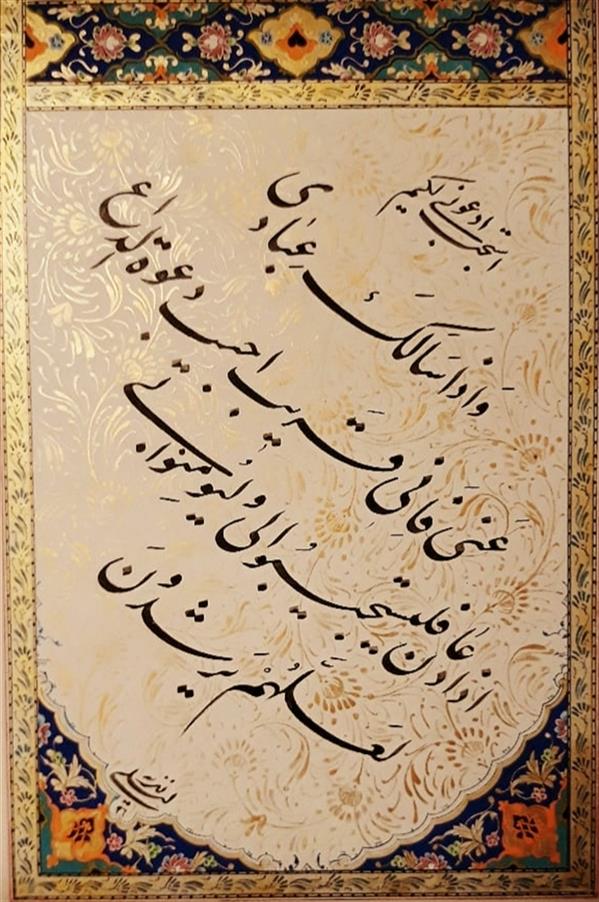 ادعونی استجب لکم
وَاذا سَالَکَ عِبَادی
عَنّی فَانّی قَریب اجیب دعوة الداع
اذا دعان فلیستجیبُوا لی ولیُومِنوا بی
لَعَلَّهُم یَرشدونَ